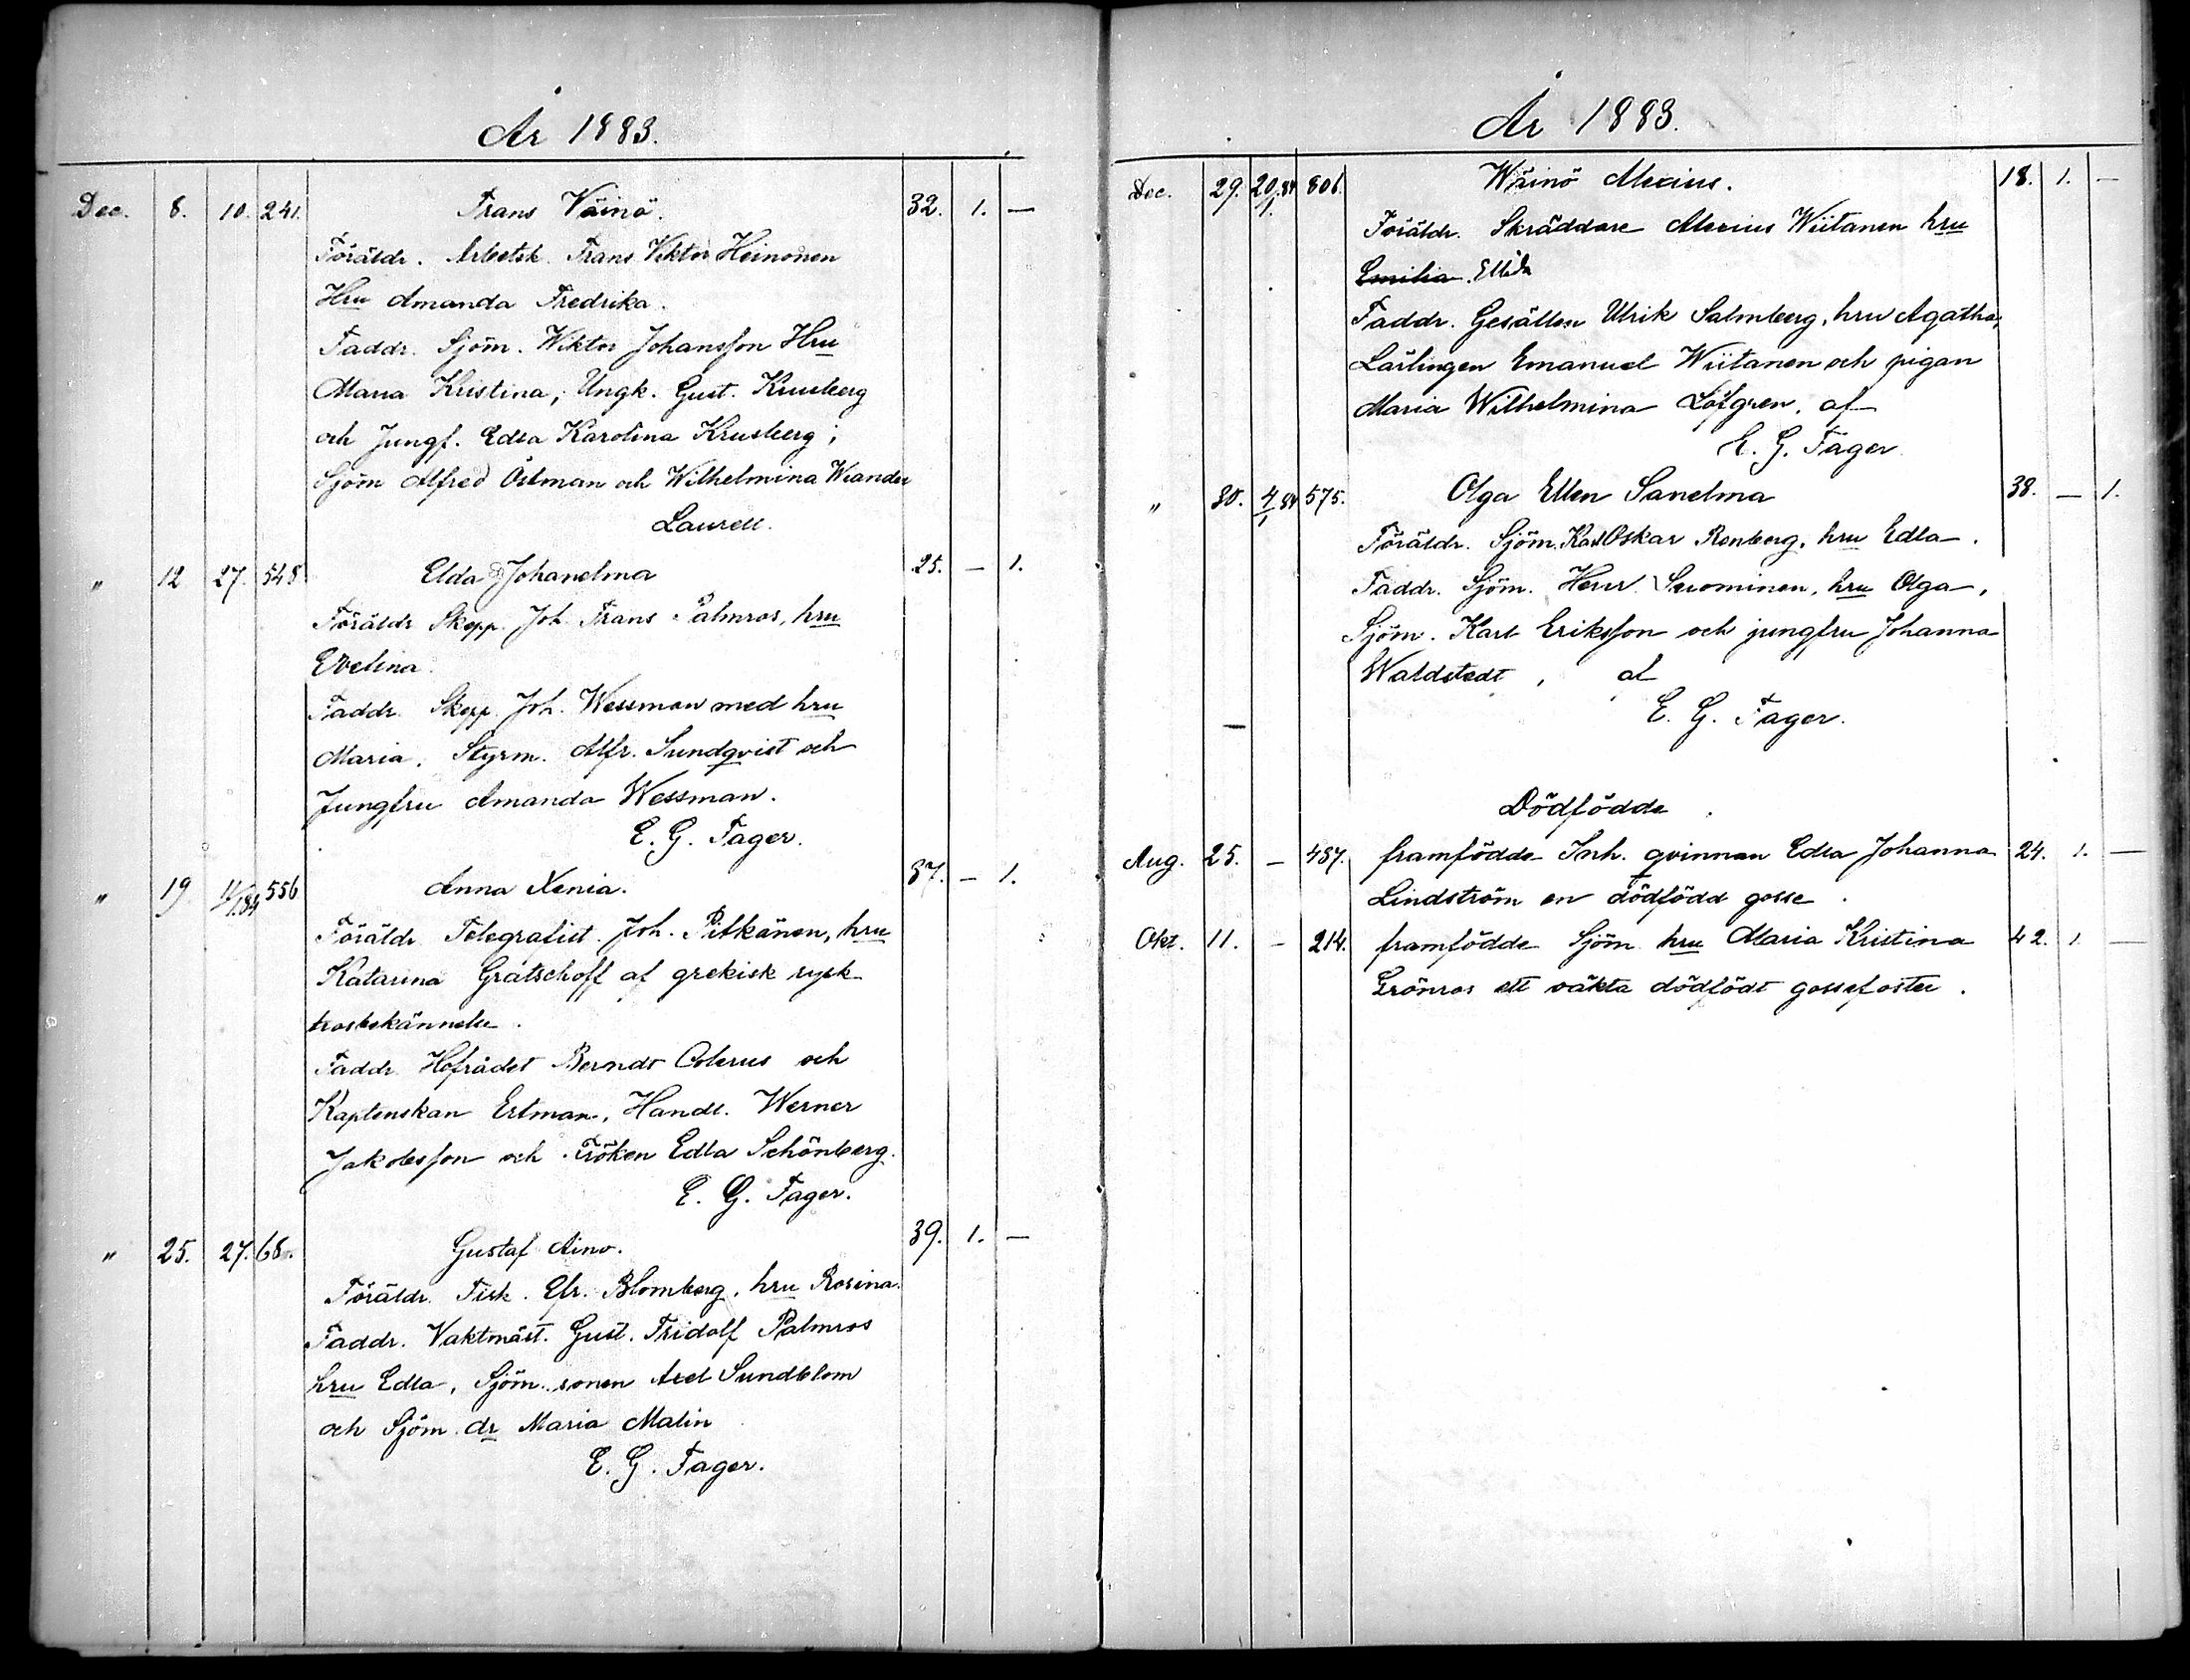 År 1883.
Dec. 8. 10. 241. Frans Väinö. 32. 1. —
Föräldr. Arbetsk. Frans Viktor Heinonen
Hru Amanda Fredrika.
Faddr. Sjöm. Wiktor Johansson Hru
Maria Kristina; Ungk. Gust. Krusberg
och Jungf. Edla Karolina Krusberg;
Sjöm Alfred Östman och Wilhelmina Wiander
Laurell.
" 12 27. 548 Elda Johanelma 25. — 1.
Föräldr Skepp. Joh. Frans Palmros, hru
Evelina.
Faddr. Skepp. Joh. Wessman med hru
Maria, Styrm. Alfr. Sundqvist och
Jungfru Amanda Wessman.
E. G. Fager.
" 19 11/1 84 556 Anna Xenia. 37. — 1.
Föräldr Telegrafist. Joh. Pitkänen, hru
Katarina Gratschoff af grekisk rysk
trosbekännelse.
Faddr. Hofrådet Berndt Colerus och
Kaptenskan Ertman, Handl. Werner
Jakobsson och Fröken Edla Schönberg.
E. G. Fager.
" 25. 27. 68. Gustaf Aino. 39. 1. —
Föräldr. Fisk. Efr. Blomberg, hru Rosina.
Faddr. Vaktmäst. Gust. Fridolf Palmros
hru Edla, Sjöm. sonen Axel Sundblom
och Sjöm. dr Maria Malin
E. G. Fager.
År 1883.
Dec. 29. 20/1 84 806. Wäinö Alexius. 18. 1. —
Föräldr. Skräddare Alexius Wiitanen hru
Emilia. Ellida
Faddr. Gesällen Ulrik Salmberg, hru Agatha,
Lärlingen Emanuel Wiitanen och pigan
Maria Wilhelmina Löfgren, af
E. G. Fager
" 30. 4/1 84 575. Olga Ellen Sanelma 38. — 1.
Föräldr. Sjöm. Karl Oskar Renberg, hru Edla.
Faddr. Sjöm. Henr. Suominen, hru Olga,
Sjöm. Karl Eriksson och jungfru Johanna
Waldstedt, af
E. G. Fager.
Dödfödde.
Aug. 25. — 487. framfödde Inh. qvinnan Edla Johanna 24. 1. —
Lindström en dödfödd gosse.
Okt. 11. — 214. framfödde Sjöm. hru Maria Kristina 42. 1. —
Grönros ett oäkta dödfödt gossefoster.